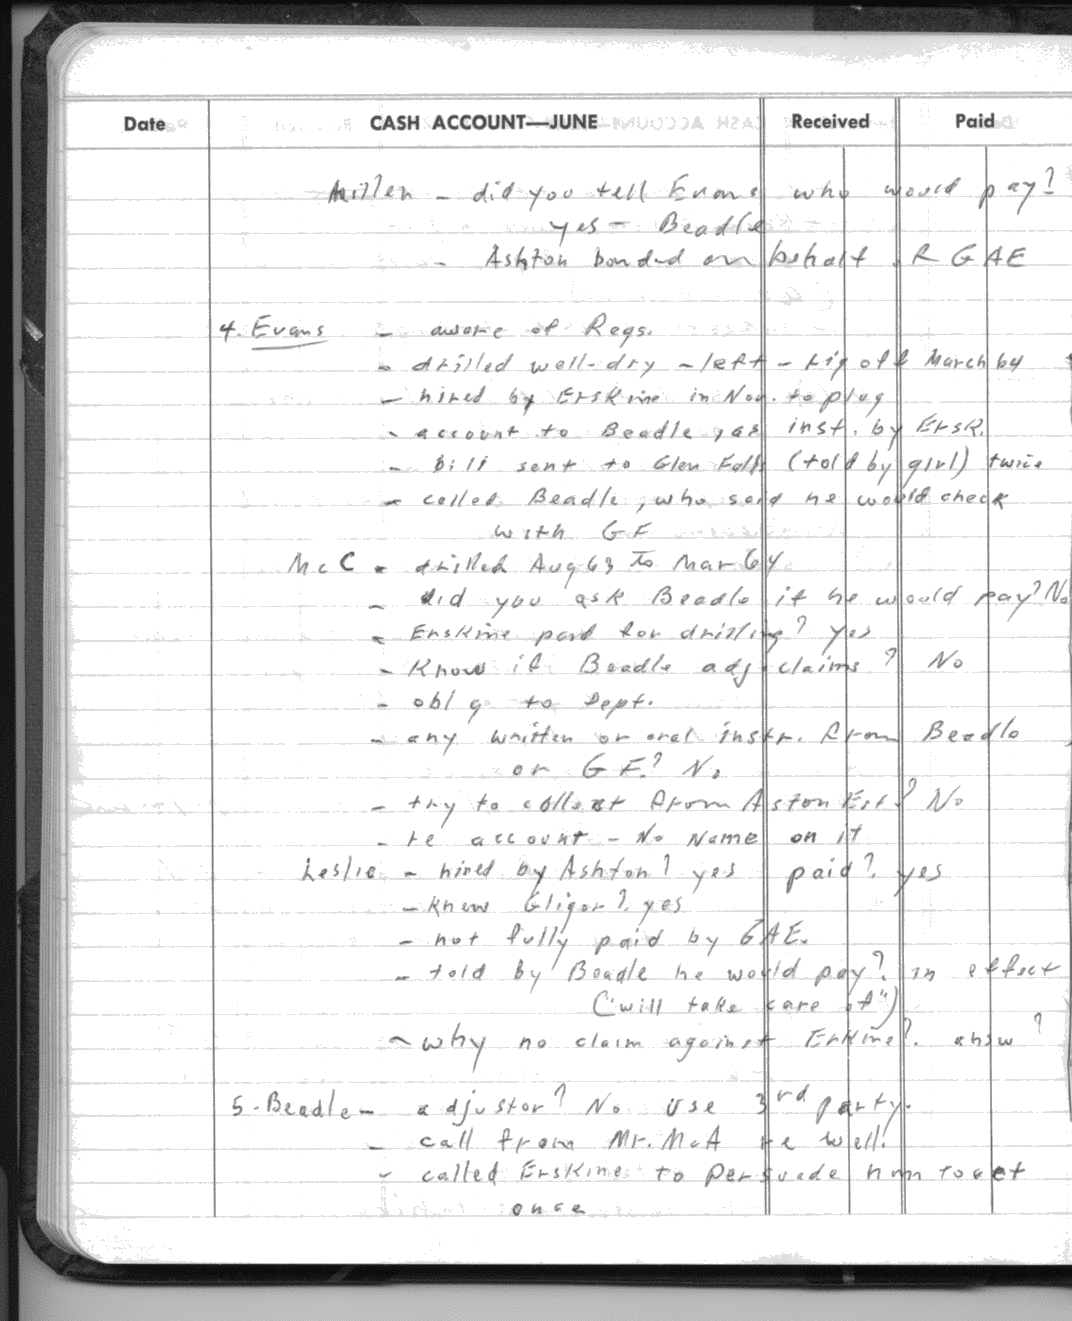 Date CASH ACCOUNT—JUNE Received Paid
Miller - did you tell Evans who would pay?
yes - Beadle
- Ashton bonded on behalf R GAE
4. Evans - aware of Regs.
- drilled well-dry - left - rig off March 64
- hired by Erskine in Nov. to plug
- account to Beadle, as inst. by Ersk.
- bill sent to Glen Falls (told by girl) twice
- called Beadle, who said he would check
with GF
McC - drilled Aug 63 to Mar 64
- did you ask Beadle if he would pay? No
- Erskine paid for drilling? yes
- Know if Beadle adj. claims? No
- oblg to Dept.
- any written or oral instr. from Beadle
or GF? No
- try to collect from Aston Est? No
- re account - No Name on it
Leslie - hired by Ashton? yes paid? yes
- knew Gligor? yes
- not fully paid by GAE.
- told by Beadle he would pay? in effect
("will take care of")
- why no claim against Erkine? answ?
5 - Beadle - adjustor? No. Use 3rd party.
- call from Mr. McA re well.
- called Erskine to persuade him to act
once